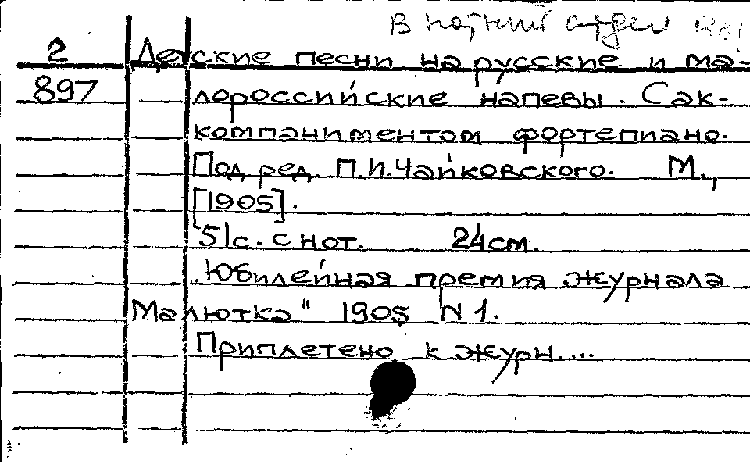 В нотный отдел
2 Детские песни на русские и ма-
897 лороссийские напевы. С ак-
компаниментом фортепиано.
Под ред. П.И.Чайковского. М.,
[1905].
51с. с нот. 24см.
"Юбилейная премия журнала
Малютка" 1905 N 1.
Приплетено к журн....